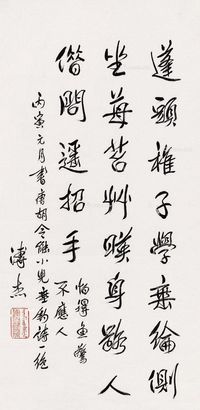 蓬頭稚子學垂綸側
坐莓苔草映身路人
借問遥招手
怕得魚驚
不應人
丙寅元月書唐胡令能小兒垂釣詩絶
溥杰